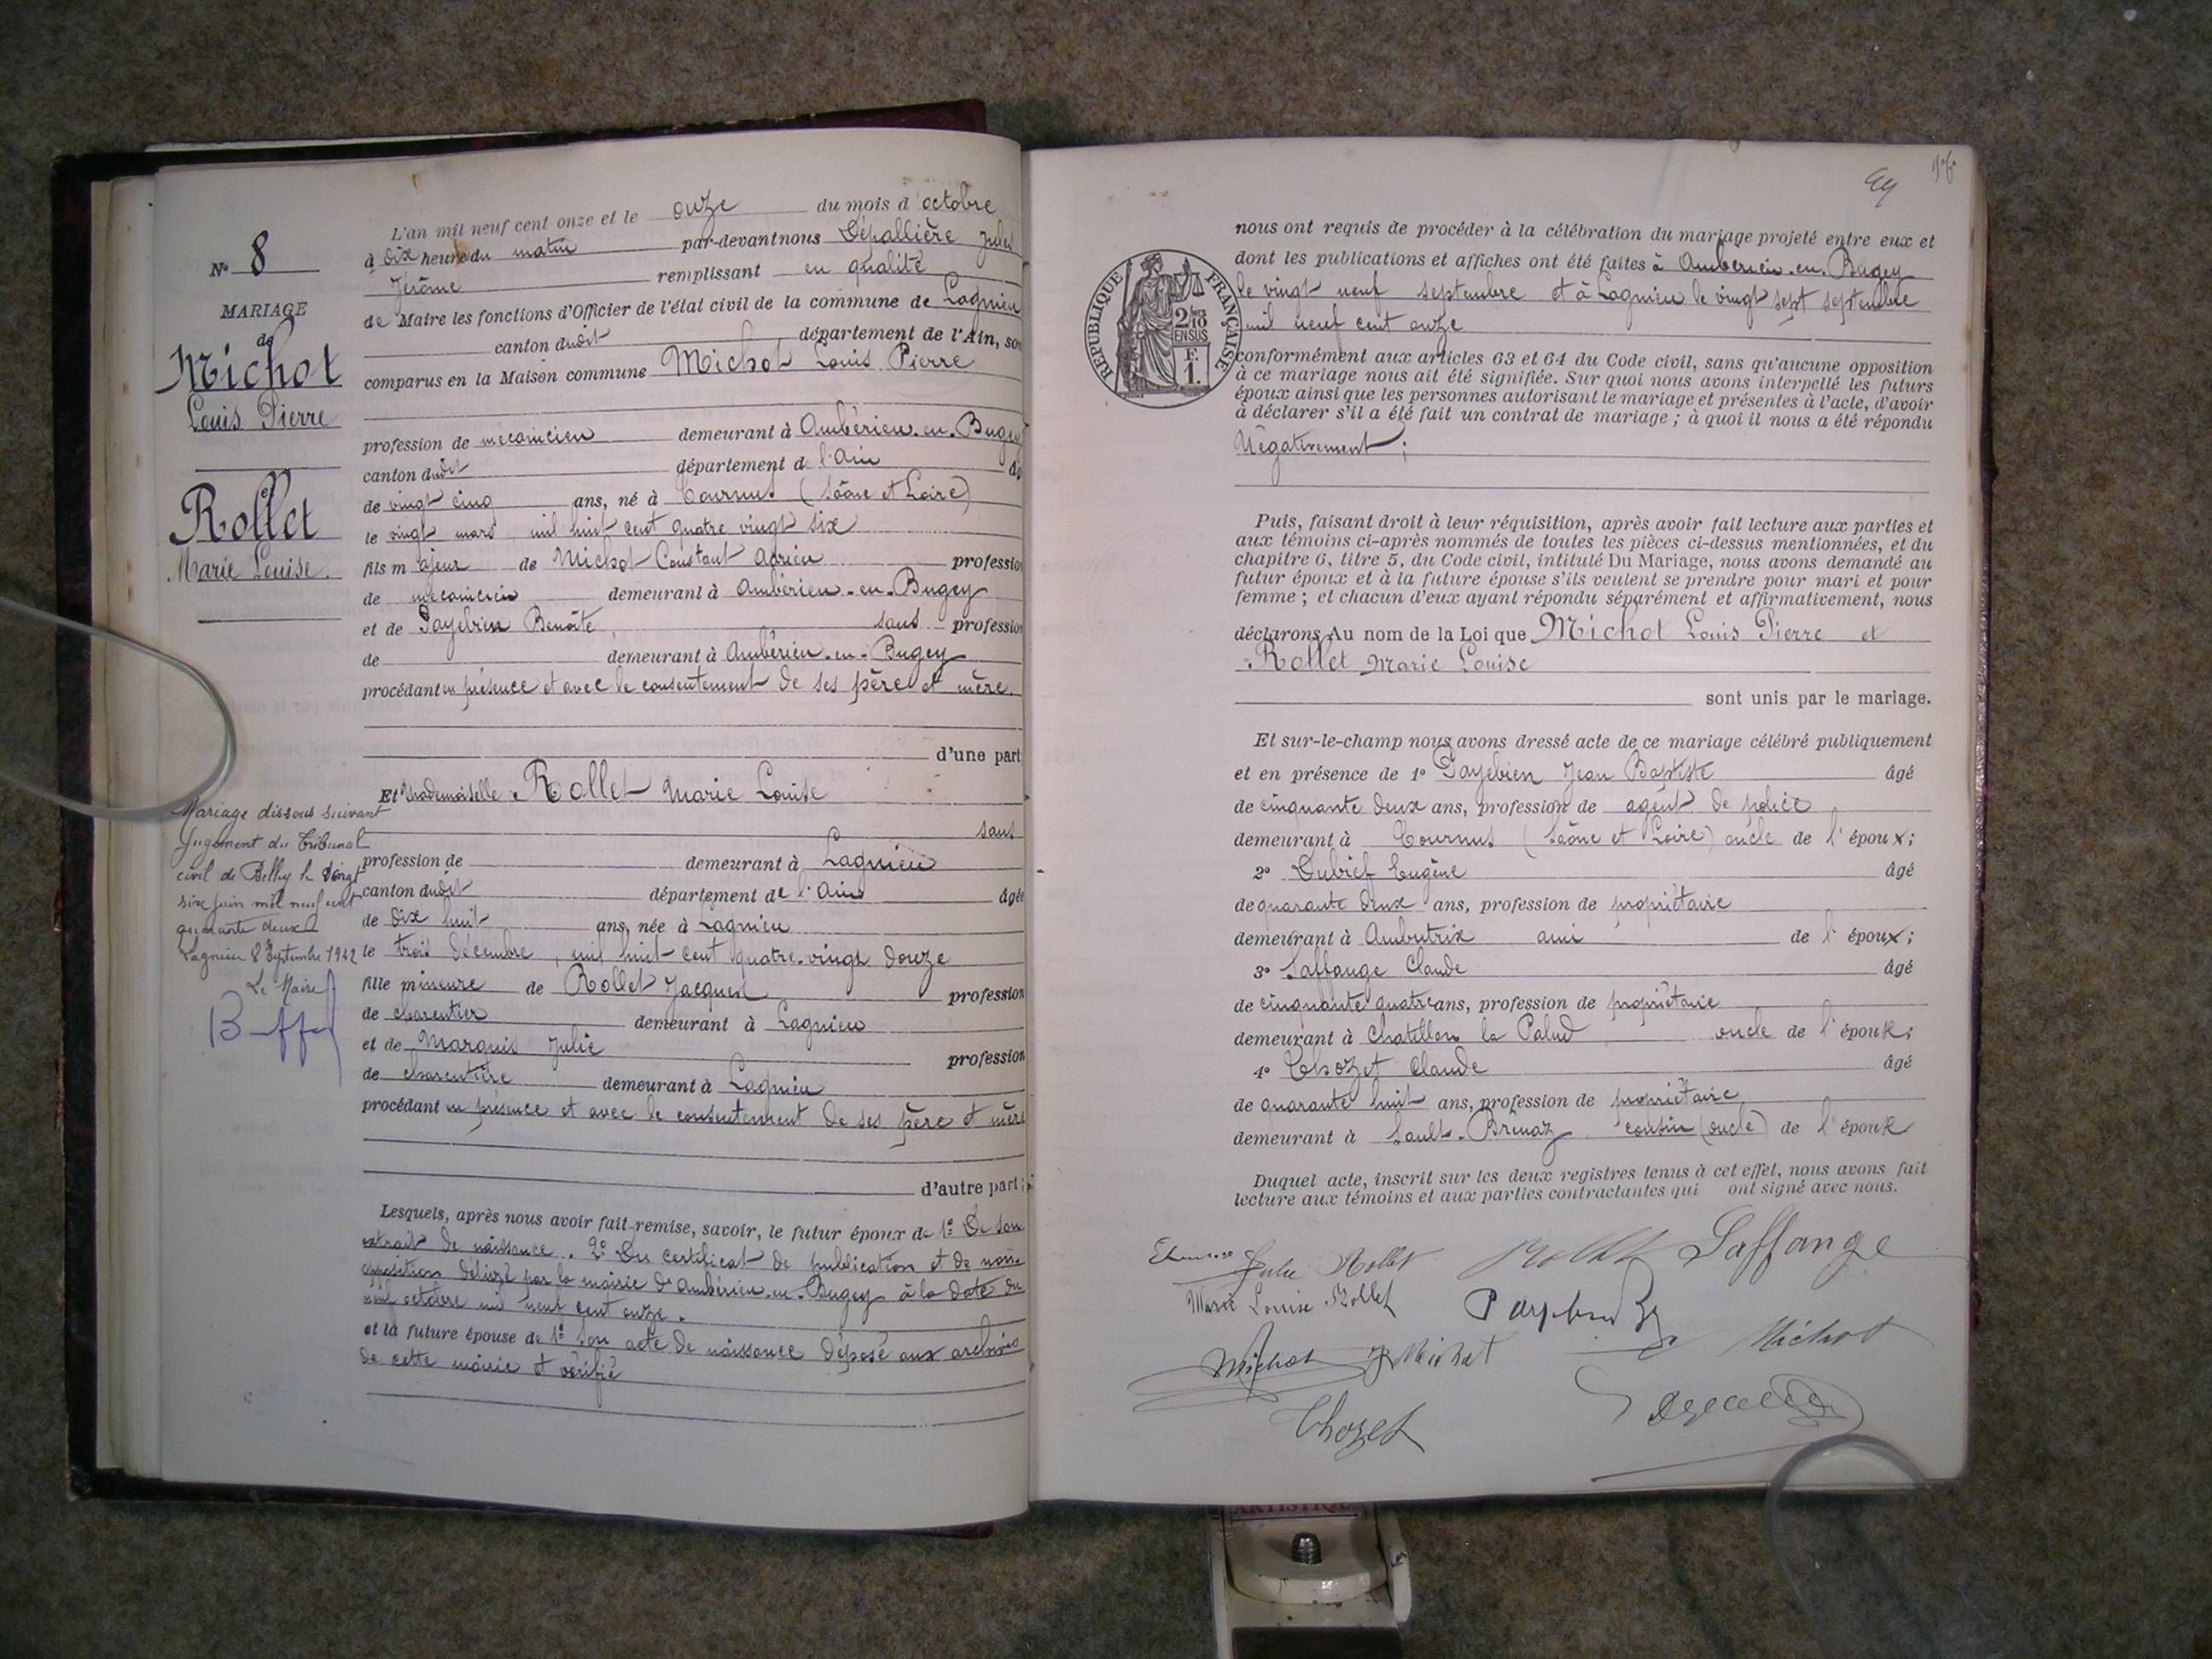 N° 8
MARIAGE
de
Michot
Louis Pierre
et
Rollet
Marie Louise.
Mariage dissous suivant
Jugement du Tribunal
civil de Belley le vingt
six juin mil neuf cent
quarante deux
Lagnieu 8 Septembre 1942
Le Maire
L'an mil neuf cent onze et le onze du mois d'octobre
à dix heures du matin par-devant nous Dépallière Jules
Jérôme remplissant en qualité
de Maire les fonctions d'Officier de l'état civil de la commune de Lagnieu
canton dudit département de l'Ain, son
comparus en la Maison commune Michot Louis Pierre
profession de mécanicien demeurant à Ambérieu-en-Bugey
canton dudit département de l'Ain
de vingt cinq ans, né à Tournus (Saône et Loire)
le vingt mars, mil huit cent quatre vingt six
fils majeur de Michot Constant Adrien profession
de mécanicien demeurant à Ambérieu-en-Bugey
et de Payebien Benoîte, sans profession
de demeurant à Ambérieu-en-Bugey
procédant en présence et avec le consentement de ses père et mère.
d'une part
Et Mademoiselle Rollet Marie Louise
sans
profession de demeurant à Lagnieu
canton dudit département de l'Ain âgée
de dix huit ans, née à Lagnieu
le trois décembre, mil huit cent quatre-vingt douze
fille mineure de Rollet Jacques profession
de charentier demeurant à Lagnieu
et de Marquis Julie profession
de charentière demeurant à Lagnieu
procédant en présence et avec le consentement de ses père et mère
d'autre part;
Lesquels, après nous avoir fait remise, savoir, le futur époux de 1° De son
extrait de naissance. 2° Du certificat de publication et de non-
opposition délivré par la mairie d'Ambérieu-en-Bugey à la date du
octobre mil neuf cent onze.
et la future épouse de 1° Son acte de naissance déposé aux archives
de cette mairie et vérifié
99
RÉPUBLIQUE FRANÇAISE
2/10
EN SUS
F.
1.
nous ont requis de procéder à la célébration du mariage projeté entre eux et
dont les publications et affiches ont été faites à Ambérieu-en-Bugey
le vingt neuf septembre et à Lagnieu le vingt sept septembre
mil neuf cent onze
conformément aux articles 63 et 64 du Code civil, sans qu'aucune opposition
à ce mariage nous ait été signifiée. Sur quoi nous avons interpellé les futurs
époux ainsi que les personnes autorisant le mariage et présentes à l'acte, d'avoir
à déclarer s'il a été fait un contrat de mariage ; à quoi il nous a été répondu
Négativement ;
Puis, faisant droit à leur réquisition, après avoir fait lecture aux parties et
aux témoins ci-après nommés de toutes les pièces ci-dessus mentionnées, et du
chapitre 6, titre 5, du Code civil, intitulé Du Mariage, nous avons demandé au
futur époux et à la future épouse s'ils veulent se prendre pour mari et pour
femme ; et chacun d'eux ayant répondu séparément et affirmativement, nous
déclarons Au nom de la Loi que Michot Louis Pierre et
Rollet Marie Louise
sont unis par le mariage.
Et sur-le-champ nous avons dressé acte de ce mariage célébré publiquement
et en présence de 1° Payebien Jean Baptiste âgé
de cinquante deux ans, profession de agent de police
demeurant à Tournus (Saône et Loire) oncle de l'époux ;
2° Dubief Eugène âgé
de quarante deux ans, profession de propriétaire
demeurant à Ambutrix ami de l'époux ;
3° Laffange Claude âgé
de cinquante quatre ans, profession de propriétaire
demeurant à Chatillon la Palud oncle de l'épouse ;
4° Thozet Claude âgé
de quarante huit ans, profession de propriétaire
demeurant à Sault-Brenaz cousin (oncle) de l'épouse
Duquel acte, inscrit sur les deux registres tenus à cet effet, nous avons fait
lecture aux témoins et aux parties contractantes qui ont signé avec nous.
Julie Rollet Rollet Laffange
Marie Louise Rollet
Michot Michot Michot
Thozet
ARTISTIQU